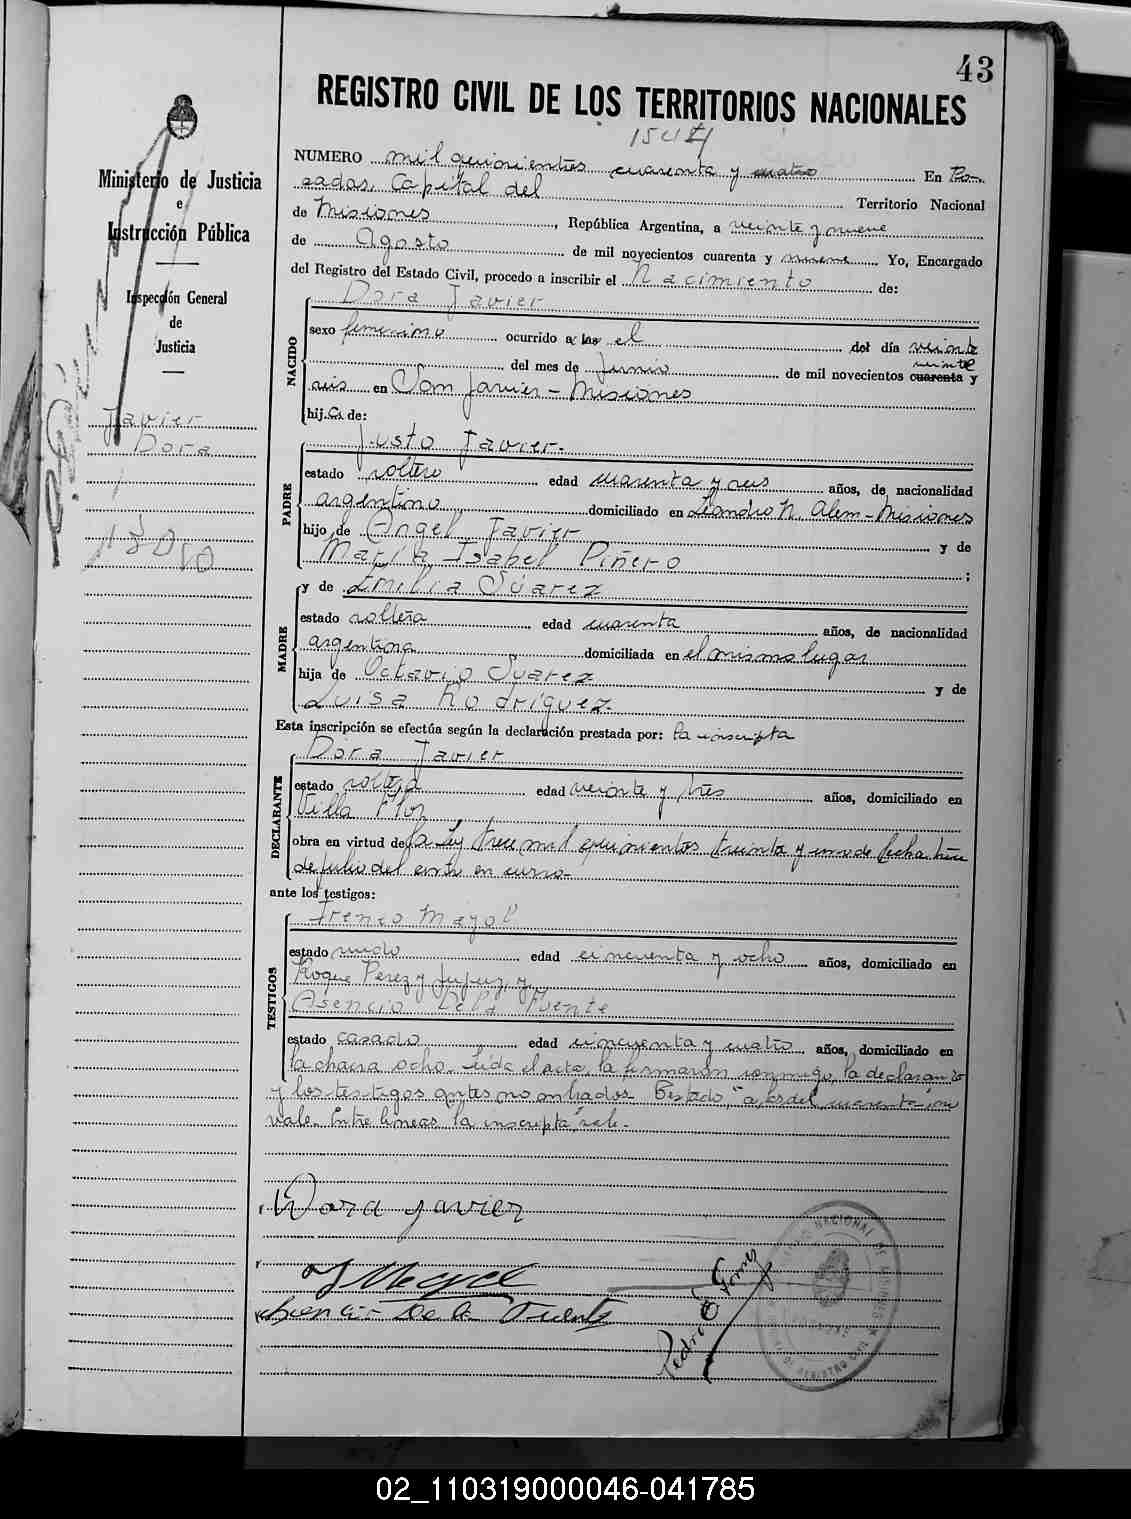 43
REGISTRO CIVIL DE LOS TERRITORIOS NACIONALES
1544
NUMERO mil quinientos cuarenta y cuatro En Po-
sadas, Capital del Territorio Nacional
de Misiones, República Argentina, a veinte y nueve
de Agosto de mil novecientos cuarenta y nueve Yo, Encargado
del Registro del Estado Civil, procedo a inscribir el Nacimiento de:
Dora Javier
NACIDO
sexo femenino ocurrido a las el del día veinte
del mes de Junio de mil novecientos cuarenta y
veinte
seis en San Javier - Misiones
hij.a de:
Justo Javier.
PADRE
estado soltero edad cuarenta y seis años, de nacionalidad
argentino domiciliado en Leandro N. Alem - Misiones
hijo de Angel Javier y de
María Isabel Piñero ;
MADRE
y de Emilia Súarez
estado soltera edad cuarenta años, de nacionalidad
argentina domiciliada en el mismo lugar
hija de Octavio Suarez y de
Luisa Rodríguez.
Esta inscripción se efectúa según la declaración prestada por: la inscripta
DECLARANTE
Dora Javier
estado soltera edad veinte y tres años, domiciliado en
Villa Flor
obra en virtud de la Ley trece mil quinientos treinta y uno de fecha trece
de julio del cnte en curso-
ante los testigos:
TESTIGOS
Ireneo Mayol
estado viudo edad cincuenta y ocho años, domiciliado en
Roque Perez y Jujuy, y
Asencio De la Fuente
estado casado edad cincuenta y cuatro años, domiciliado en
la chacra ocho. Leída el acta, la firmaron conmigo, la declarante
y los testigos antes nombrados. Testado, "a las del cuarenta" no
vale. Entre lineas "la inscripta" vale.-
Dora Javier
Mayol
Asencio De la Fuente
Pedro Gomez
Ministerio de Justicia
e
Instrucción Pública
Inspección General
de
Justicia
Javier
Dora
02_110319000046-041785